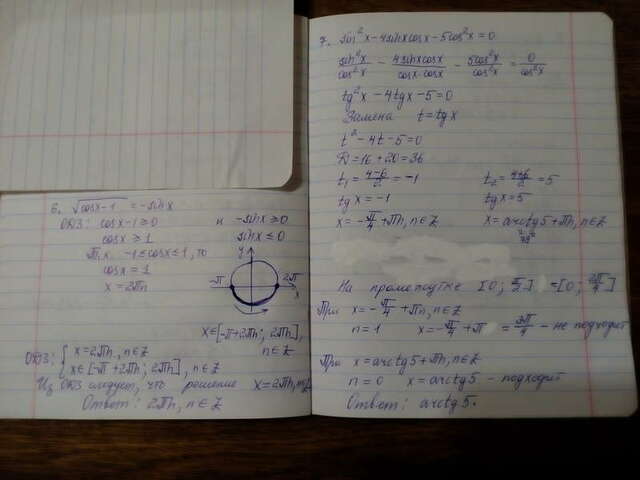 6. √cosx-1 = -sinx
ОДЗ: cosx-1≥0 и -sinx≥0
cosx≥1 sinx≤0
Т.к. -1≤cosx≤1, то
cosx=1
x=2πn
y
-π 2π
x
x∈[-π+2πn; 2πn],
n∈Z
ОДЗ: { x=2πn, n∈Z
x∈[-π+2πn; 2πn], n∈Z
Из ОДЗ следует, что решение x=2πn, n∈Z
Ответ: 2πn, n∈Z
7. sin²x-4sinxcosx-5cos²x=0
sin²x/cos²x - 4sinxcosx/cosx·cosx - 5cos²x/cos²x = 0/cos²x
tg²x-4tgx-5=0
Замена t=tgx
t²-4t-5=0
D=16+20=36
t₁=4-6/2=-1 t₂=4+6/2=5
tgx=-1 tgx=5
x=-π/4+πn, n∈Z x=arctg5+πn, n∈Z
На промежутке
При x=-π/4+πn, n∈Z
n=1 x=-π/4+π=3π/4 - не подходит
При x=arctg5+πn, n∈Z
n=0 x=arctg5 - подходит
Ответ: arctg5.